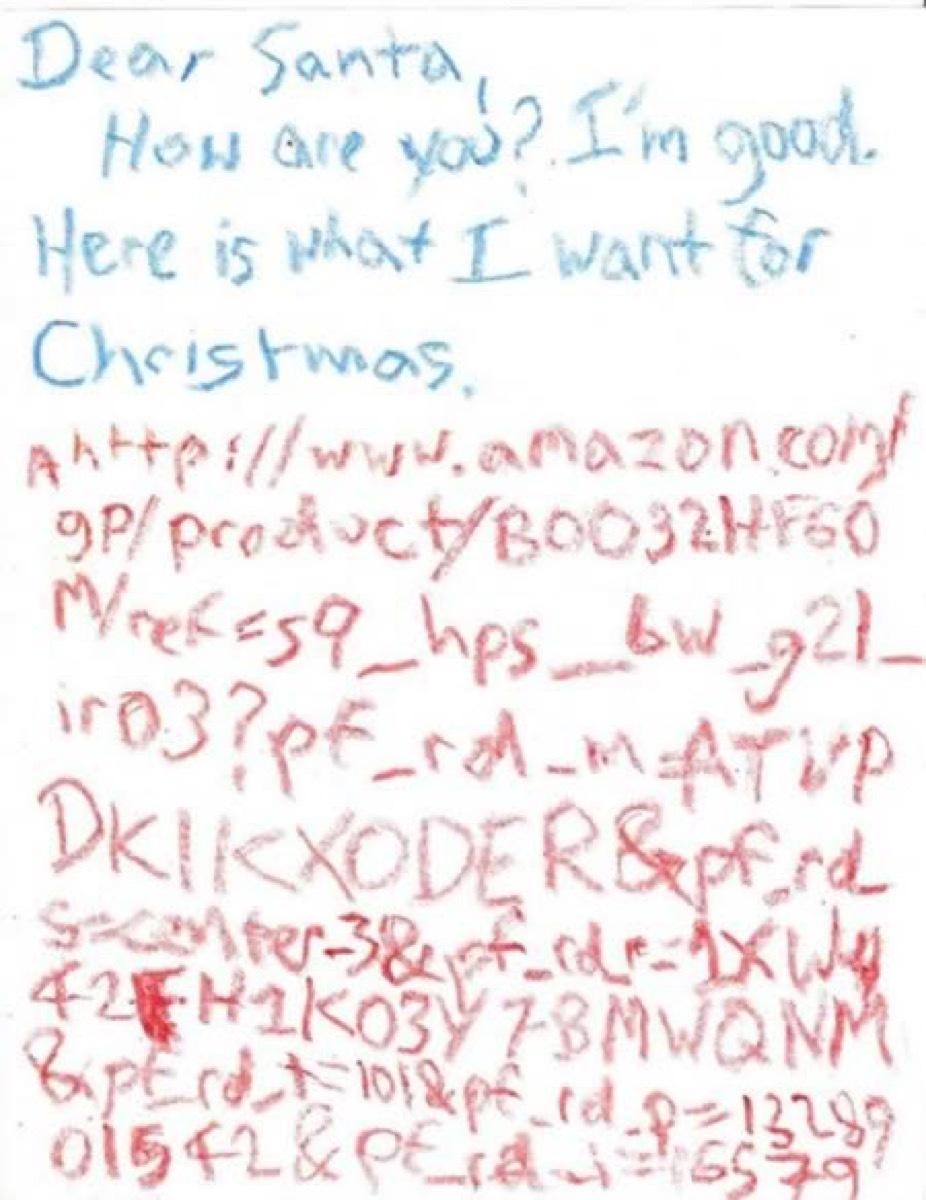 Dear Santa,
How are you? I'm good.
Here is what I want for
Christmas.
Ahttp://www.amazon.com/
gp/product/B0032HF60
M/ref=s9_hps_bw_g21_
ir03?pf_rd_m=ATVP
DKIKX0DER&pf_rd_
s=center-3&pf_rd_r=1XWW
42FH1K03Y7BMWQNM
&pf_rd_t=101&pf_rd_p=13289
01542&pf_rd_i=16579